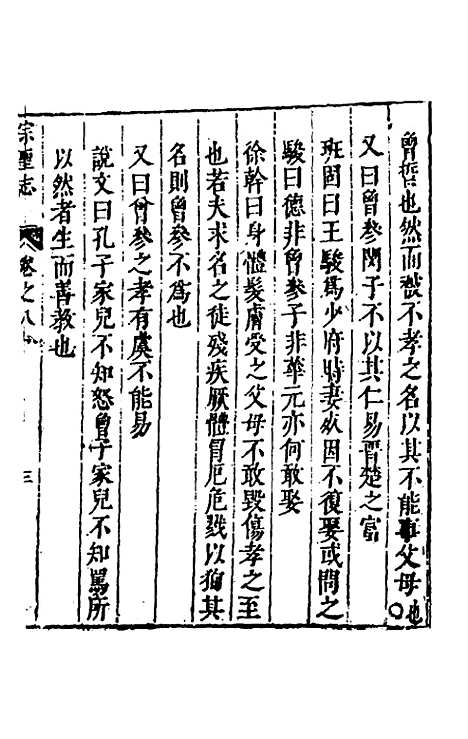 曾晳也然而被不孝之名以其不能事父母也○
又曰曾參閔子不以其仁易晉楚之富
班固曰王駿爲少府時妻死因不復娶或問之
駿曰德非曾參子非華元亦何敢娶
徐幹曰身體髮膚受之父母不敢毀傷孝之至
也若夫求名之徒殘疾厥體冒厄危戮以狥其
名則曾參不爲也
又曰曾參之孝有虞不能易
說文曰孔子家兒不知怒曾子家兒不知罵所
以然者生而善教也
宗聖志 卷之八 三